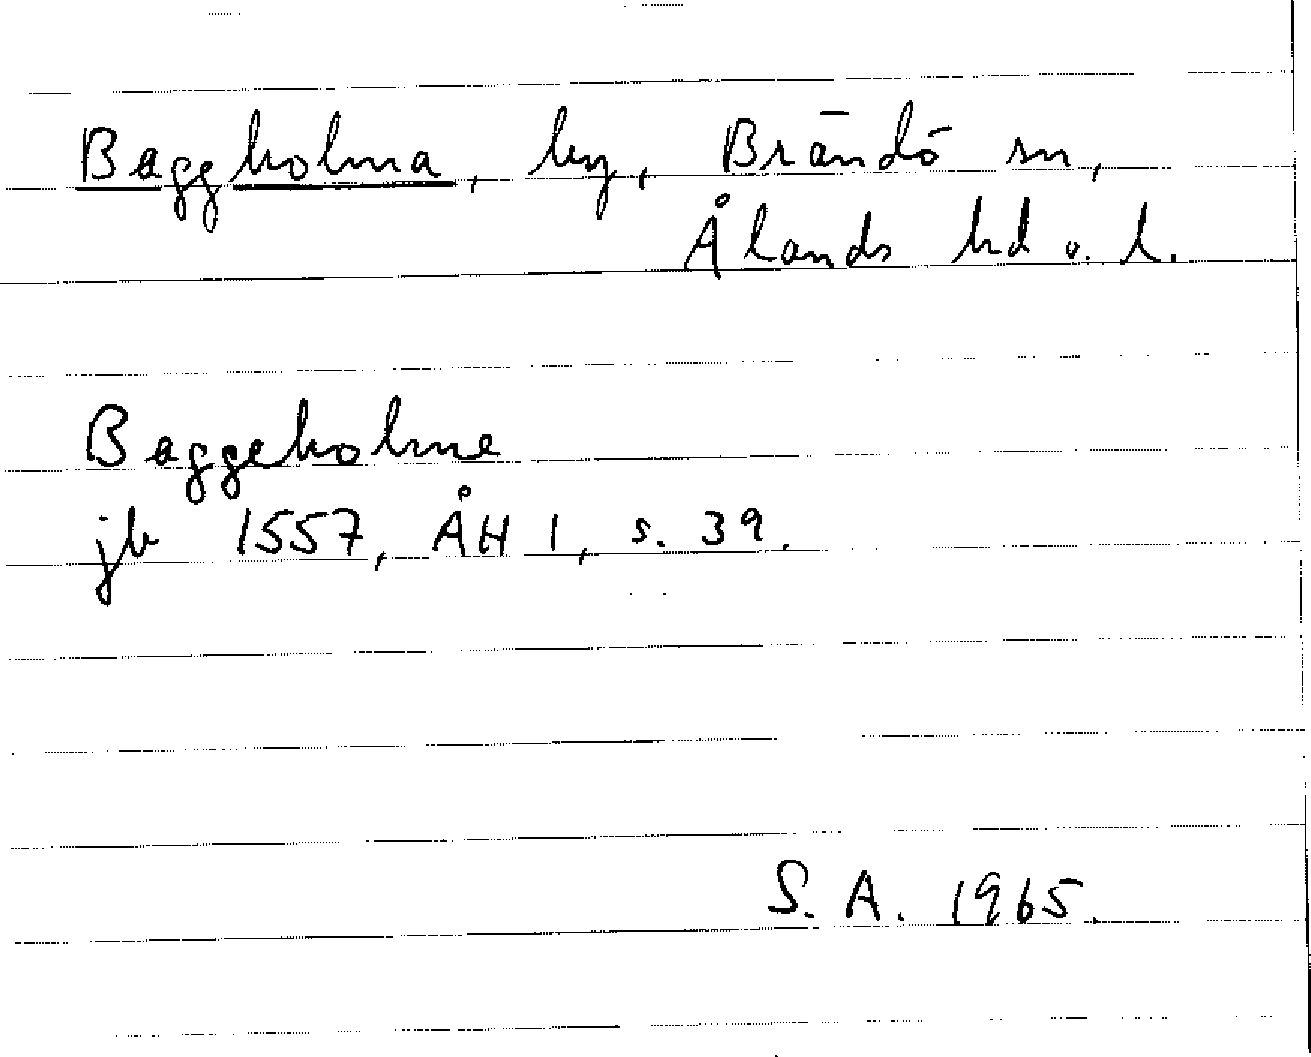 Baggholma, by, Brändö sn,
Ålands hd o. l.
Baggeholme
jb 1557, ÅH 1, s. 39.
S. A. 1965.